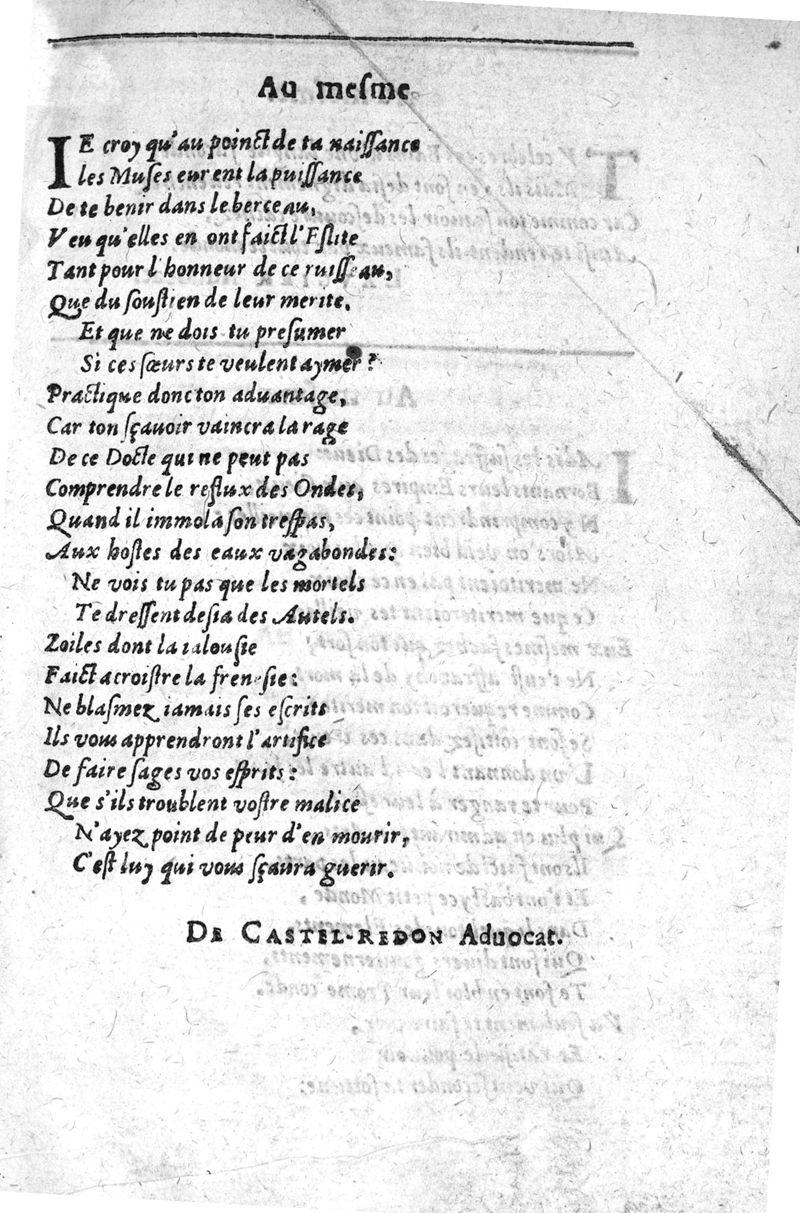 Au mesme
IE croy qu'au poinct de ta naissance
les Muses eurent la puissance
De te benir dans le berceau,
Veu qu'elles en ont faict l'Eslite
Tant pour l'honneur de ce ruisseau,
Que du soustien de leur merite.
Et que ne dois tu presumer
Si ces sœurs te veulent aymer?
Practique donc ton aduantage,
Car ton sçauoir vaincra la rage
De ce Docte qui ne peut pas
Comprendre le reflux des Ondes,
Quand il immola son trespas,
Aux hostes des eaux vagabondes:
Ne vois tu pas que les mortels
Te dressent desia des Autels.
Zoiles dont la ialousie
Faict acroistre la frenesie:
Ne blasmez iamais ses escrits
Ils vous apprendront l'artifice
De faire sages vos esprits:
Que s'ils troublent vostre malice
N'ayez point de peur d'en mourir,
C'est luy qui vous sçaura guerir.
DE CASTEL-REDON Aduocat.